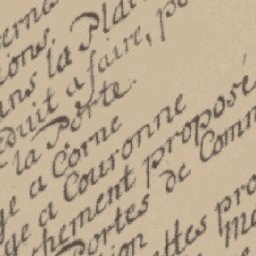 ions.
ans la Plai
duit a faire, po
la Porte.
ge a Corne
ge a Couronne
chement proposé
Portes de Com
ion
ttes pro